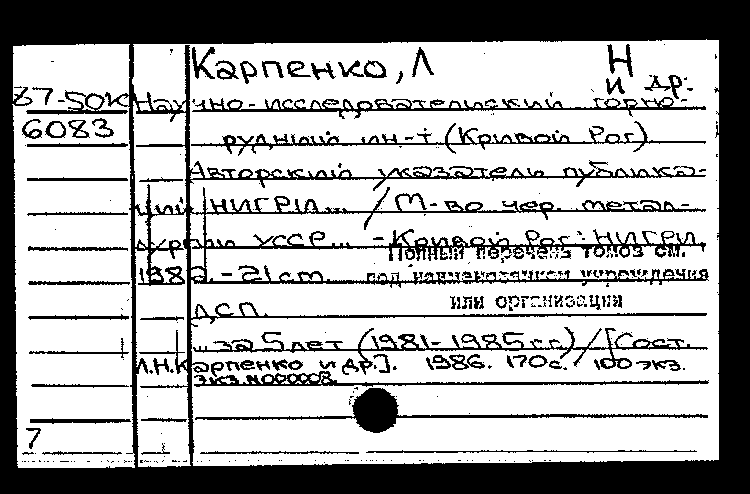 Карпенко, Л Н
и др.
87-50К Научно-исследовательский горно-
6083 рудный ин-т (Кривой Рог)
Авторский указатель публика-
ций НИГРИ... / М-во чер. метал-
лургии УССР... - Кривой Рог: НИГРИ,
Полный перечень томов см.
1982. - 21 cm. под наименованием учреждения
или организации
ДСП.
... за 5 лет (1981-1985 г.г.) / [Сост.
Л.Н. Карпенко и др.]. 1986. 170 с. 100 экз.
Экз. N000008.
7